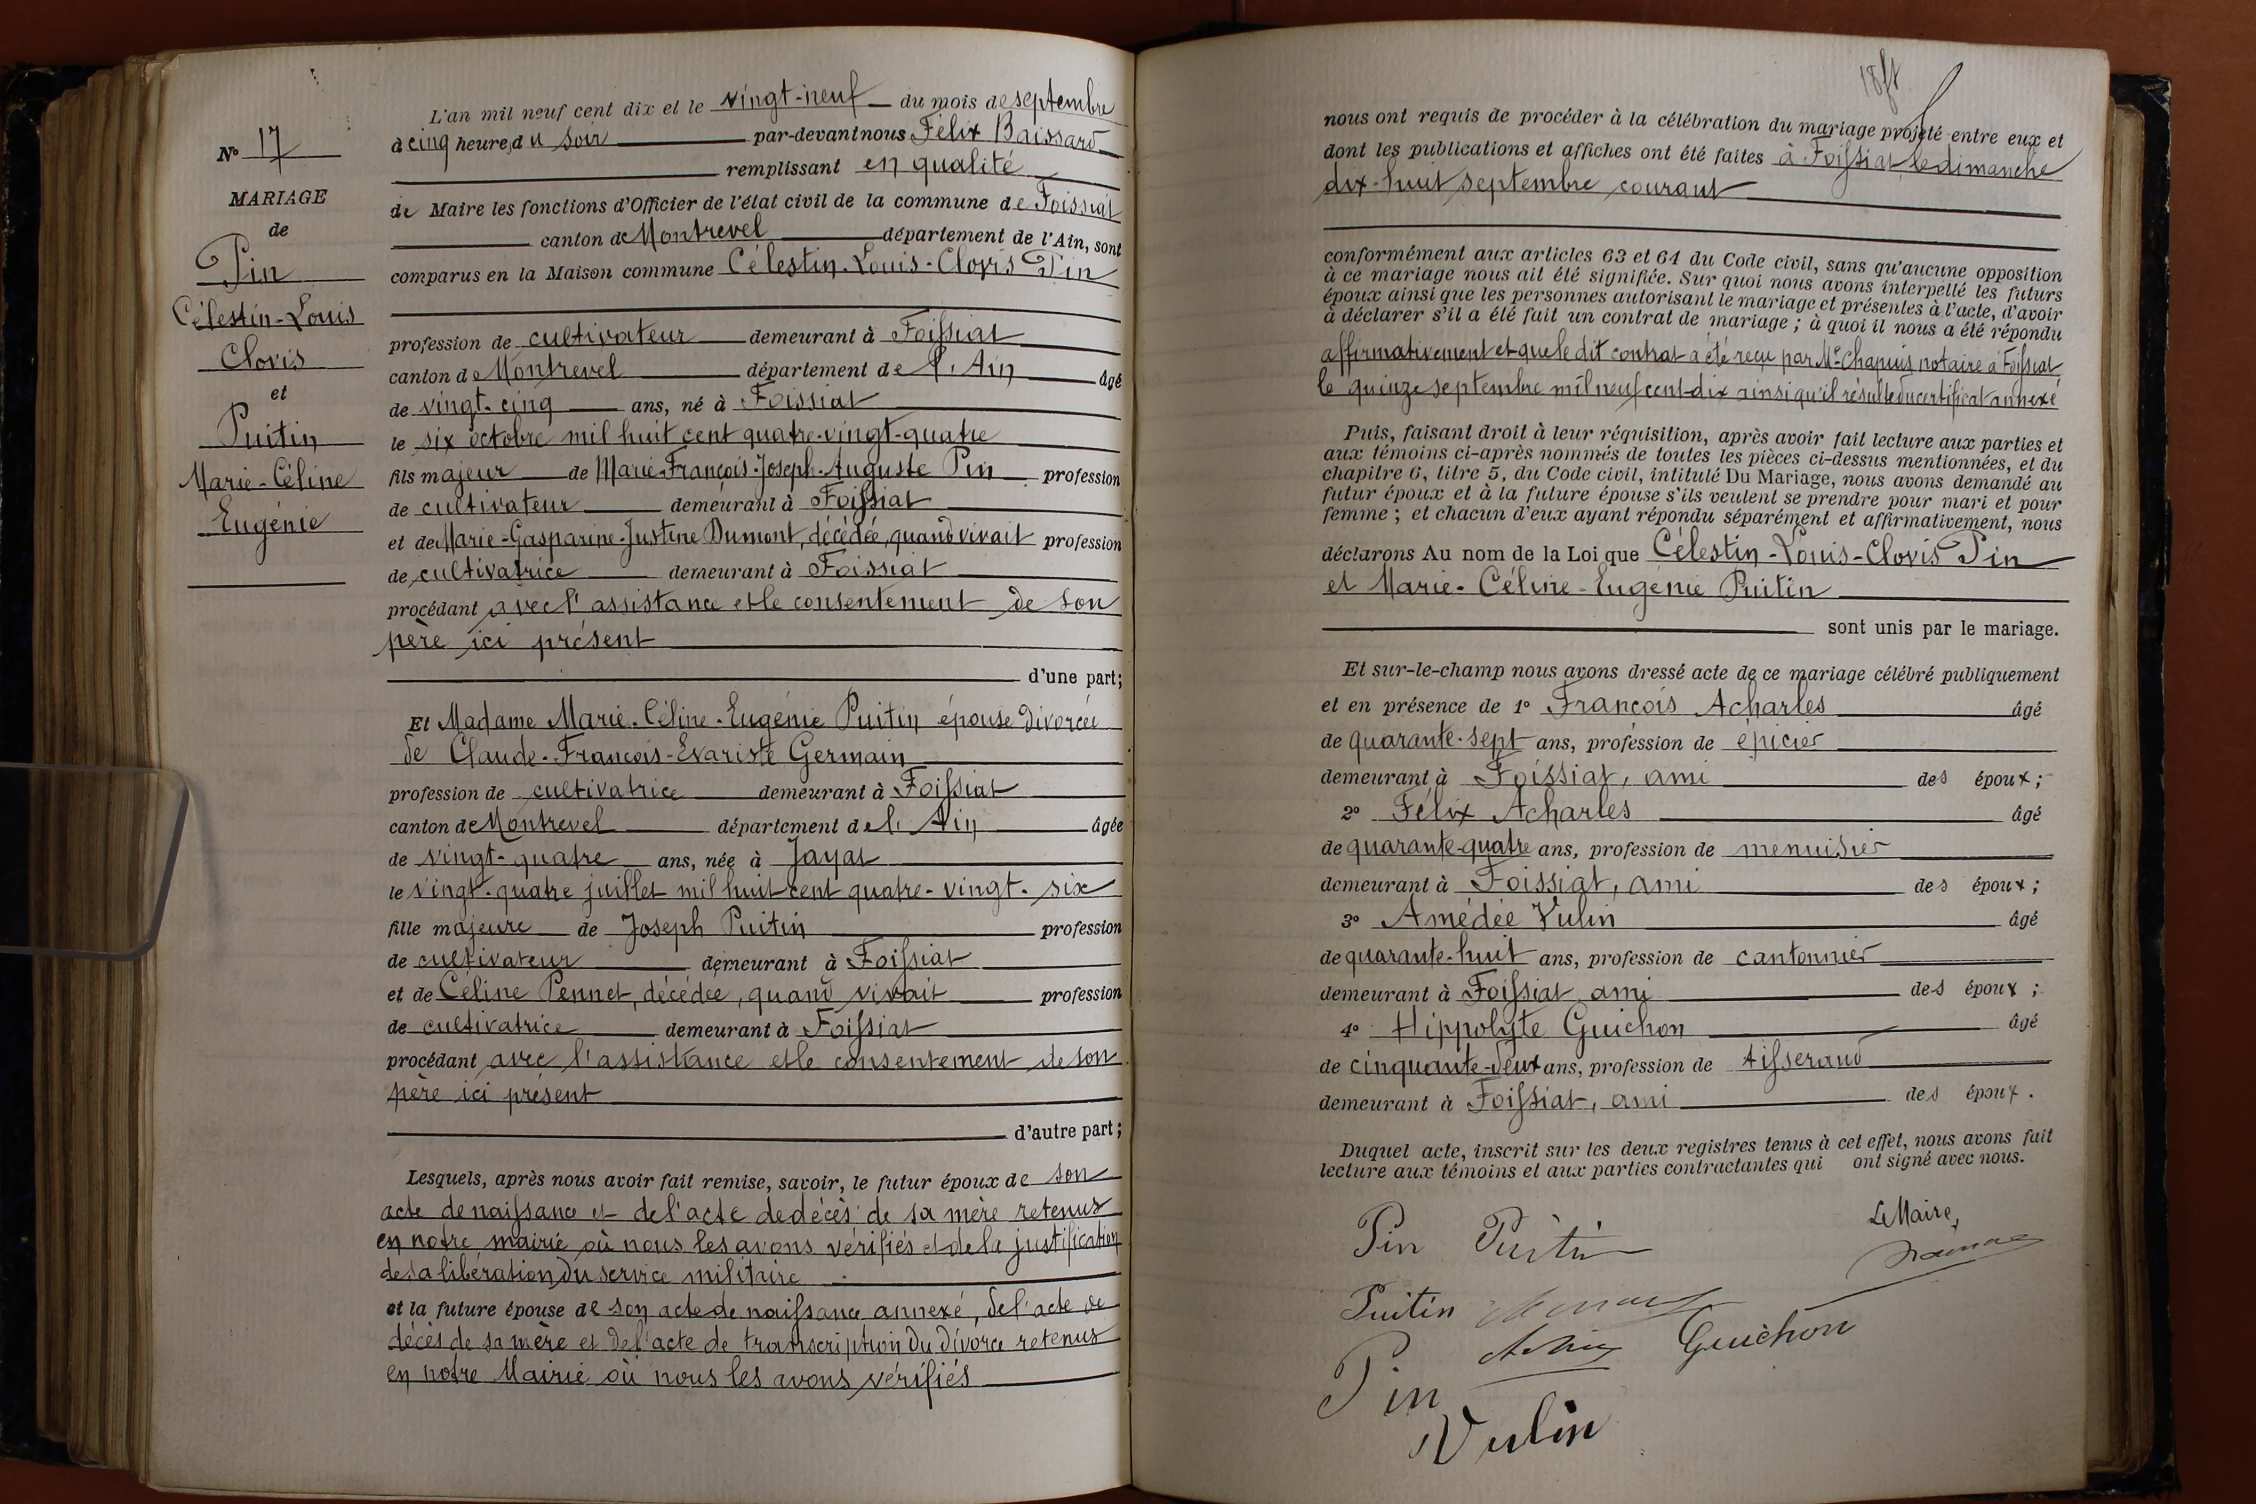 N° 17
MARIAGE
de
Pin
Célestin-Louis
Clovis
et
Puitin
Marie-Céline
Eugénie
L'an mil neuf cent dix et le vingt-neuf du mois de septembre
à cinq heures du soir par-devant nous Félix Baissard
remplissant en qualité
de Maire les fonctions d'Officier de l'état civil de la commune de Foissiat
canton de Montrevel département de l'Ain, sont
comparus en la Maison commune Célestin-Louis-Clovis Pin
profession de cultivateur demeurant à Foissiat
canton de Montrevel département de l'Ain âgé
de vingt-cinq ans, né à Foissiat
le six octobre mil huit cent quatre-vingt-quatre
fils majeur de Marie-François-Joseph-Auguste Pin profession
de cultivateur demeurant à Foissiat
et de Marie-Gasparine-Justine Dumont, décédée, quand vivait profession
de cultivatrice demeurant à Foissiat
procédant avec l'assistance et le consentement de son
père ici présent
d'une part;
Et Madame Marie-Céline-Eugénie Puitin épouse divorcée
de Claude-François-Evariste Germain
profession de cultivatrice demeurant à Foissiat
canton de Montrevel département de l'Ain âgée
de vingt-quatre ans, née à Jayat
le vingt-quatre juillet mil huit cent quatre-vingt-six
fille majeure de Joseph Puitin profession
de cultivateur demeurant à Foissiat
et de Céline Pennet, décédée, quand vivait profession
de cultivatrice demeurant à Foissiat
procédant avec l'assistance et le consentement de son
père ici présent
d'autre part;
Lesquels, après nous avoir fait remise, savoir, le futur époux de son
acte de naissance et de l'acte de décès de sa mère retenus
en notre mairie où nous les avons vérifiés et de la justification
de sa libération du service militaire
et la future épouse de son acte de naissance annexé, de l'acte de
décès de sa mère et de l'acte de transcription du divorce retenus
en notre Mairie où nous les avons vérifiés
nous ont requis de procéder à la célébration du mariage projeté entre eux et
dont les publications et affiches ont été faites à Foissiat le dimanche
dix-huit septembre courant
conformément aux articles 63 et 64 du Code civil, sans qu'aucune opposition
à ce mariage nous ait été signifiée. Sur quoi nous avons interpellé les futurs
époux ainsi que les personnes autorisant le mariage et présentes à l'acte, d'avoir
à déclarer s'il a été fait un contrat de mariage ; à quoi il nous a été répondu
affirmativement et que le dit contrat a été reçu par Me Chapuis notaire à Foissiat
le quinze septembre mil neuf cent dix ainsi qu'il résulte du certificat annexé
Puis, faisant droit à leur réquisition, après avoir fait lecture aux parties et
aux témoins ci-après nommés de toutes les pièces ci-dessus mentionnées, et du
chapitre 6, titre 5, du Code civil, intitulé Du Mariage, nous avons demandé au
futur époux et à la future épouse s'ils veulent se prendre pour mari et pour
femme ; et chacun d'eux ayant répondu séparément et affirmativement, nous
déclarons Au nom de la Loi que Célestin-Louis-Clovis Pin
et Marie-Céline-Eugénie Puitin
sont unis par le mariage.
Et sur-le-champ nous avons dressé acte de ce mariage célébré publiquement
et en présence de 1° François Acharles âgé
de quarante-sept ans, profession de épicier
demeurant à Foissiat, ami des époux ;
2° Félix Acharles âgé
de quarante-quatre ans, profession de menuisier
demeurant à Foissiat, ami des époux ;
3° Amédée Vulin âgé
de quarante-huit ans, profession de cantonnier
demeurant à Foissiat ami des époux ;
4° Hippolyte Guichon âgé
de cinquante-deux ans, profession de tisserand
demeurant à Foissiat, ami des époux.
Duquel acte, inscrit sur les deux registres tenus à cet effet, nous avons fait
lecture aux témoins et aux parties contractantes qui ont signé avec nous.
Pin Puitin
Le Maire,
Puitin
Guichon
Pin
Vulin